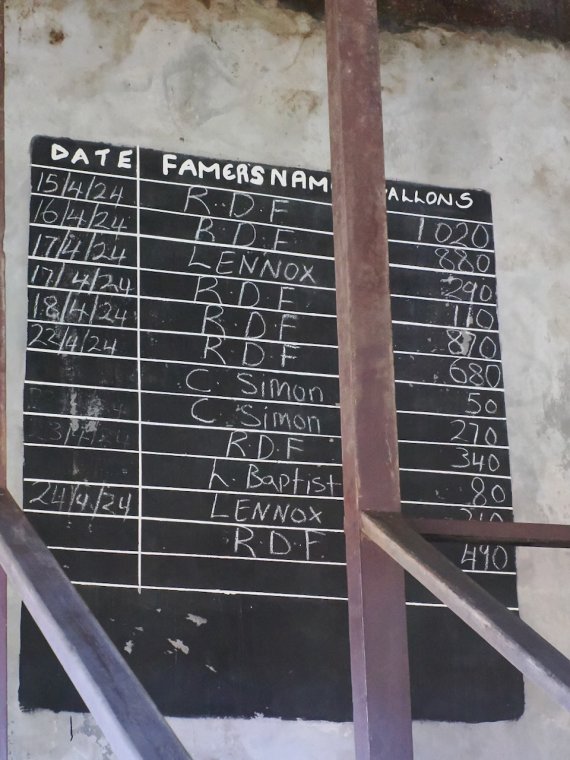 DATE FAMERS NAM ALLONS
15/4/24 R.D.F 1020
16/4/24 R.D.F 880
17/4/24 LENNOX 290
17/4/24 R.D.F 110
18/4/24 R.D.F
22/4/24 R.D.F 680
C. Simon 50
C. Simon 270
R.D.F 340
L. Baptist 80
24/4/24 LENNOX
R.D.F. 490